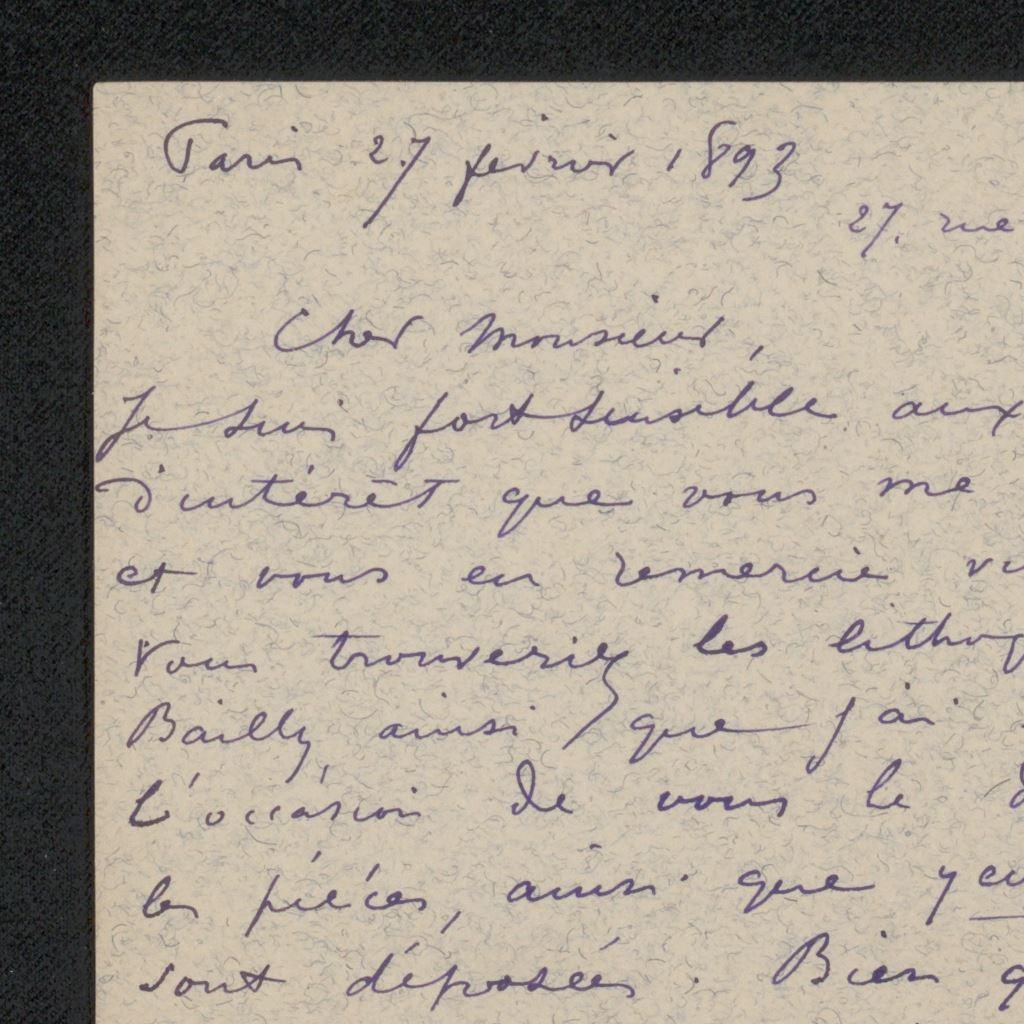 Paris 27 février 1893
27. rue
Cher Monsieur,
Je suis fort sensible aux
d'intérêt que vous me
et vous en remercie
Vous trouveriez les
Bailly, ainsi que j'ai
L'occasion de vous le
les pièces, ainsi que
sont déposées. Bien